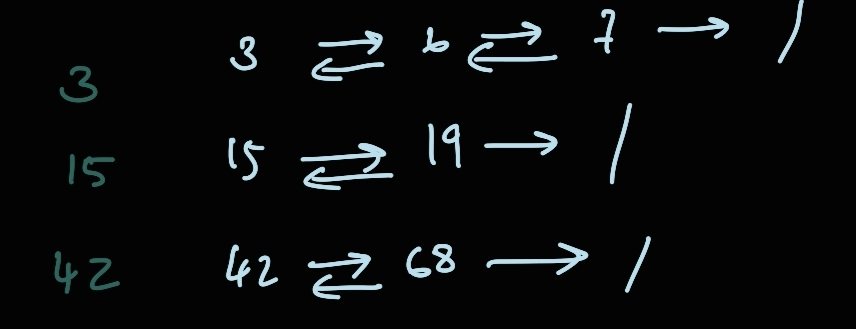 3 3 ⇄ 6 ⇄ 7 → /
15 15 ⇄ 19 → /
42 42 ⇄ 68 → /